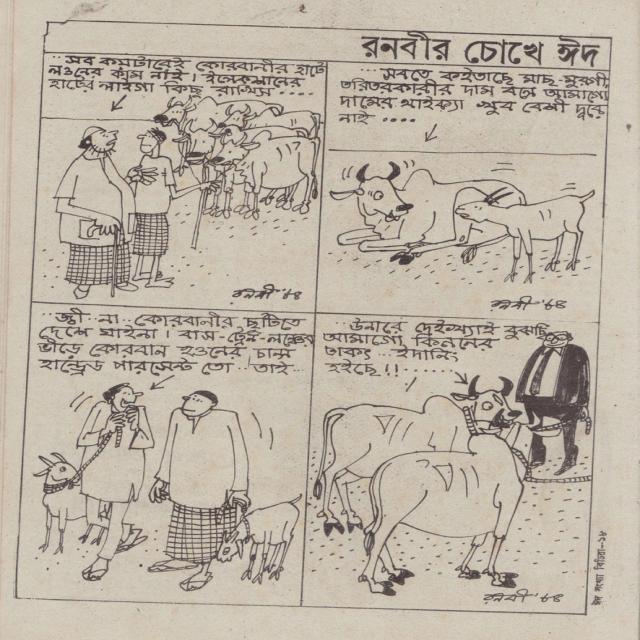 রনবীর চোখে ঈদ
...সব কয়টারেই কোরবানীর হাটে
লওনের কাম নাই। ইলেকশানের
হাটের লাইগা কিছু রাখিস ....
রনবী '৮৪
...সবতে কইতাছে মাছ-মুরগী,
তরিতরকারীর দাম বলে আমাগো
দামের থাইক্যা খুব বেশী দূরে
নাই ....
রনবী '৮৪
...জ্বী না.. কোরবানীর ছুটিতে
দেশে যাইনা। বাস-ট্রেন-লঞ্চের
ভীড়ে কোরবান হওনের চান্স
হান্ড্রেড পারসেন্ট তো.. তাই...
...উনারে দেইখ্যাই বুঝছি
আমাগো কিননের
ট্যাকা ..ইদানিং
হইছে!!
রনবী '৮৪
ঈদ সংখ্যা বিচিত্রা-৯৮